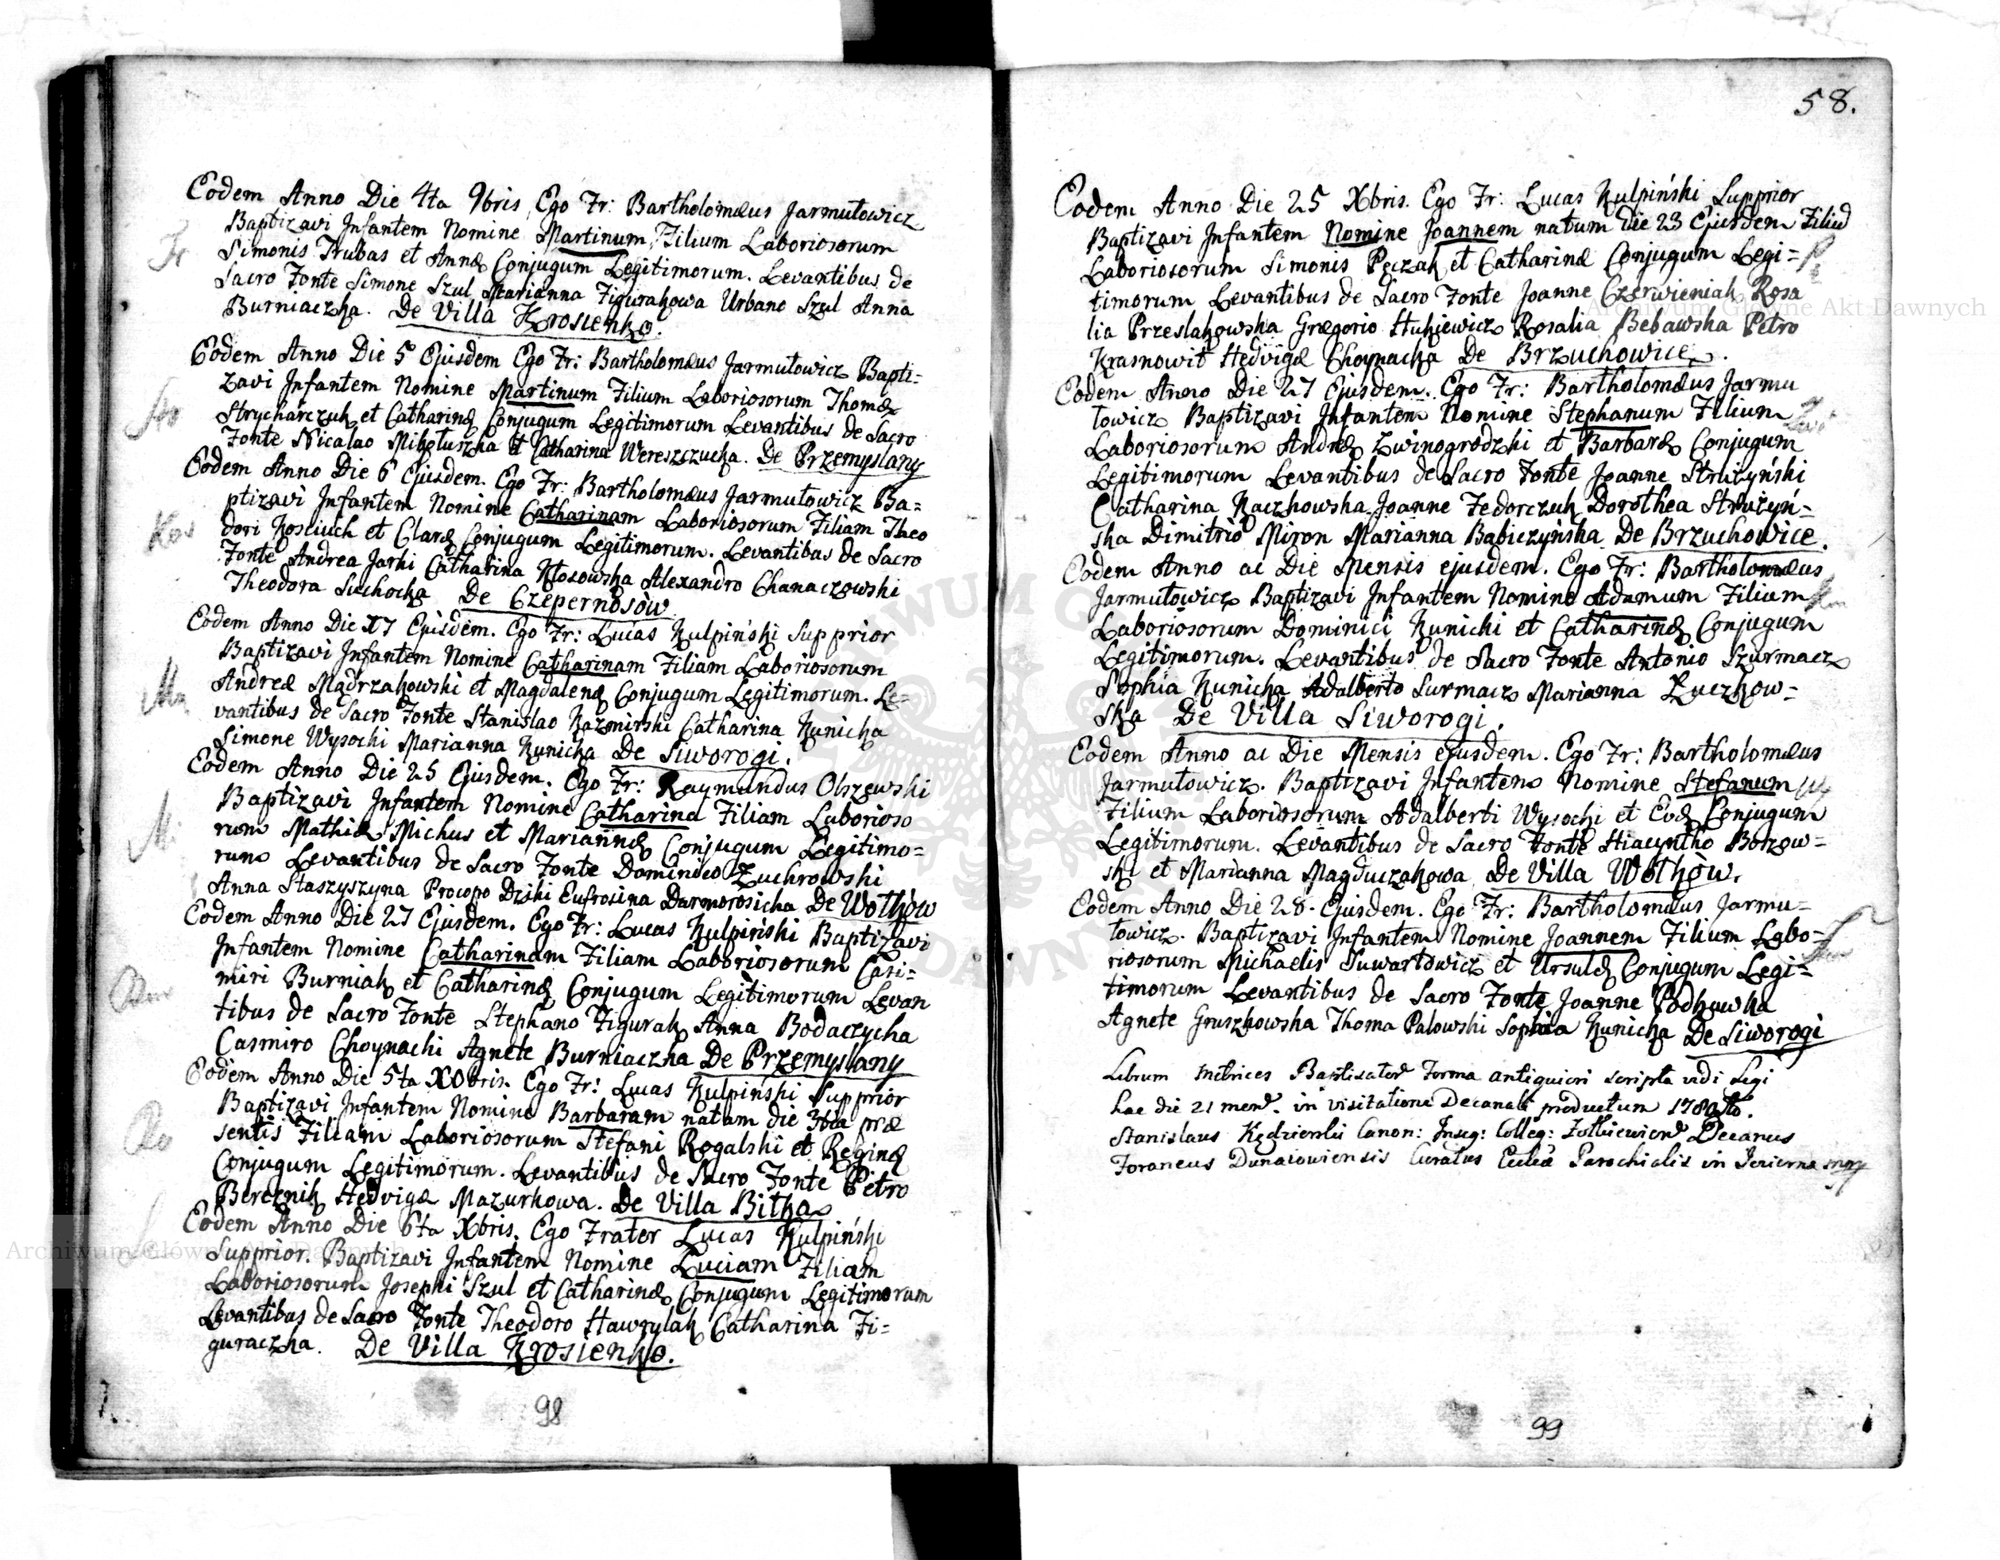 Eodem Anno Die 4ta 9bris Ego Fr: Bartholomæus Jarmułowicz
Baptizavi Infantem Nomine Martinum, Filium Laboriosorum
Simonis Trubas et Annæ Conjugum Legitimorum. Levantibus de
Sacro Fonte Simone Szul Marianna Figurakowa Urbano Szul Anna
Burniaczka. De Villa Krosienko.
Eodem Anno Die 5 Ejusdem Ego Fr: Bartholomæus Jarmułowicz Bapti-
zavi Infantem Nomine Martinum Filium Laboriosorum Thomæ
Strycharczuk et Catharinæ Conjugum Legitimorum Levantibus de Sacro
Fonte Nicalao Mikołuszka et Catharina Wereszczucka. De Przemyslany
Eodem Anno Die 6 Ejusdem. Ego Fr: Bartholomæus Jarmułowicz Ba=
ptizavi Infantem Nomine Catharinam Laboriosorum Filiam Theo
dori Kosciuch et Claræ Conjugum Legitimorum. Levantibus de Sacro
Fonte Andrea Jarki Catharina Kłosowska Alexandro Chanaczowski
Theodora Suchocka De Czepernosów
Eodem Anno Die 17 Ejusdem. Ego Fr: Lucas Kulpiński Supprior
Baptizavi Infantem Nomine Catharinam Filiam Laboriosorum
Andreæ Mądrzakowski et Magdalenæ Conjugum Legitimorum. Le-
vantibus de Sacro Fonte Stanislao Kazmirski Catharina Kunicka
Simone Wysocki Marianna Kunicka De Siworogi.
Eodem Anno Die 25 Ejusdem. Ego Fr: Raymundus Olszewski
Baptizavi Infantem Nomine Catharina Filiam Laborioso
rum Mathiæ Michus et Mariannæ Conjugum Legitimo-
rum Levantibus de Sacro Fonte Dominico Zuchrowski
Anna Staszyszyna Procopo Dziki Eufrosina Darmorosicha De Wołków
Eodem Anno Die 27 Ejusdem. Ego Fr: Lucas Kulpiński Baptizavi
Infantem Nomine Catharinam Filiam Laboriosorum Casi-
miri Burniak et Catharinæ Conjugum Legitimorum Levan
tibus de Sacro Fonte Stephano Figurak Anna Bodaczycha
Casmiro Choynacki Agnete Burniaczka De Przemyslany
Eodem Anno Die 5ta XObris. Ego Fr: Lucas Kulpiński Supprior
Baptizavi Infantem Nomine Barbaram natam die 3tia præ
sentis Filiam Laboriosorum Stefani Rogalski et Reginæ
Conjugum Legitimorum. Levantibus de Sacro Fonte Pietro
Bereznik Hedvigæ Mazurkowa. De Villa Bitka
Eodem Anno Die 6ta Xbris. Ego Frater Lucas Kulpiński
Supprior. Baptizavi Infantem Nomine Luciam Filiam
Laboriosorum Josephi Szul et Catharinæ Conjugum Legitimorum
Levantibus de Sacro Fonte Theodoro Hawrylak Catharina Fi=
guraczka. De Villa Krosienko.
98
58.
Eodem Anno Die 25 Xbris. Ego Fr: Lucas Kulpiński Supprior
Baptizavi Infantem Nomine Joannem natum die 23 Ejusdem Filiū
Laboriosorum Simonis Pęczak et Catharinæ Conjugum Legi=
timorum Levantibus de Sacro Fonte Joanne Czerwieniak Rosa
lia Przeslakowska Gregorio Hukiewicz Rosalia Bebawska Petro
Krasnowit Hedvigæ Choynacka De Brzuchowice.
Eodem Anno Die 27 Ejusdem. Ego Fr: Bartholomæus Jarmu
łowicz Baptizavi Infantem Nomine Stephanum Filium
Laboriosorum Andreæ Zwinogrodzki et Barbaræ Conjugum
Legitimorum Levantibus de Sacro Fonte Joanne Strużyński
Catharina Kaczkowska Joanne Fedorczuk Dorothea Strużyń=
ska Dimitrio Miron Marianna Babiczyńska De Brzuchowice.
Eodem Anno ac Die Mensis ejusdem. Ego Fr: Bartholomæus
Jarmułowicz Baptizavi Infantem Nomine Adamum Filium
Laboriosorum Dominici Kunicki et Catharinæ Conjugum
Legitimorum. Levantibus de Sacro Fonte Antonio Szurmacz
Sophia Kunicka Adalberto Surmacz Marianna Łuczkow=
ska De Villa Siworogi.
Eodem Anno ac Die Mensis ejusdem. Ego Fr: Bartholomæus
Jarmułowicz. Baptizavi Infantem Nomine Stefanum
Filium Laboriosorum Adalberti Wysocki et Evæ Conjugum
Legitimorum. Levantibus de Sacro Fonte Hiacyntho Borzow=
ski et Marianna Magduczakowa De Villa Wołków.
Eodem Anno Die 28. Ejusdem. Ego Fr: Bartholomæus Jarmu=
łowicz. Baptizavi Infantem Nomine Joannem Filium Labo=
riosorum Michaelis Suwartowicz et Ursulæ Conjugum Legi=
timorum Levantibus de Sacro Fonte Joanne Podkowka
Agnete Gruszkowska Thoma Palowski Sophia Kunicka De Siworogi
Librum Metrices Forma antiquiori scripta vidi Legi
hac die 21 in visitatione Decanali productum
Stanislaus Kędzierski Canon: Colleg: Decanus
Foraneus Dunaiowiensis Curatus Parochialis in
99
Archiwum Główne Akt Dawnych
Archiwum Główne Akt Dawnych